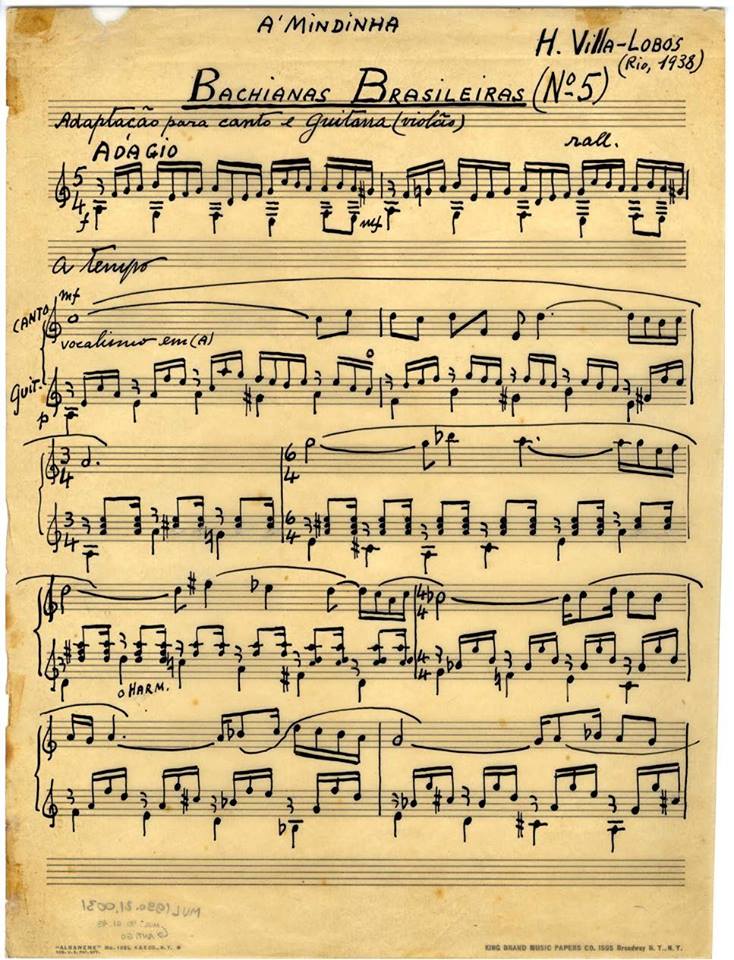 A' MINDINHA
H. Villa-Lobos
(Rio, 1938)
BACHIANAS BRASILEIRAS (Nº 5)
Adaptação para canto e guitarra (violão)
ADÁGIO
rall.
5
4
f
mf
a tempo
CANTO
mf
vocalismo em (A)
Guit.
p
3
4
6
4
3
4
6
4
4
4
4
4
HARM.
MUL 1990.21.0031
"ALBANENE"
KING BRAND MUSIC PAPERS CO. 1595 Broadway N. Y., N.Y.